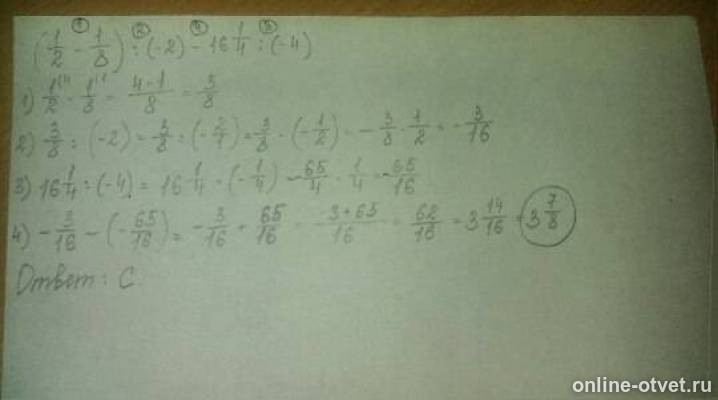 ① ② ④ ③
(1/2 - 1/8) : (-2) - 16 1/4 : (-4)
1) 1/2 - 1/8 = 4-1/8 = 3/8
2) 3/8 : (-2) = 3/8 : (-2/1) = 3/8 · (-1/2) = -3/8 · 1/2 = -3/16
3) 16 1/4 : (-4) = 16 1/4 · (-1/4) = -65/4 · 1/4 = -65/16
4) -3/16 - (-65/16) = -3/16 + 65/16 = -3+65/16 = 62/16 = 3 14/16 = 3 7/8
Ответ: С.
online-otvet.ru